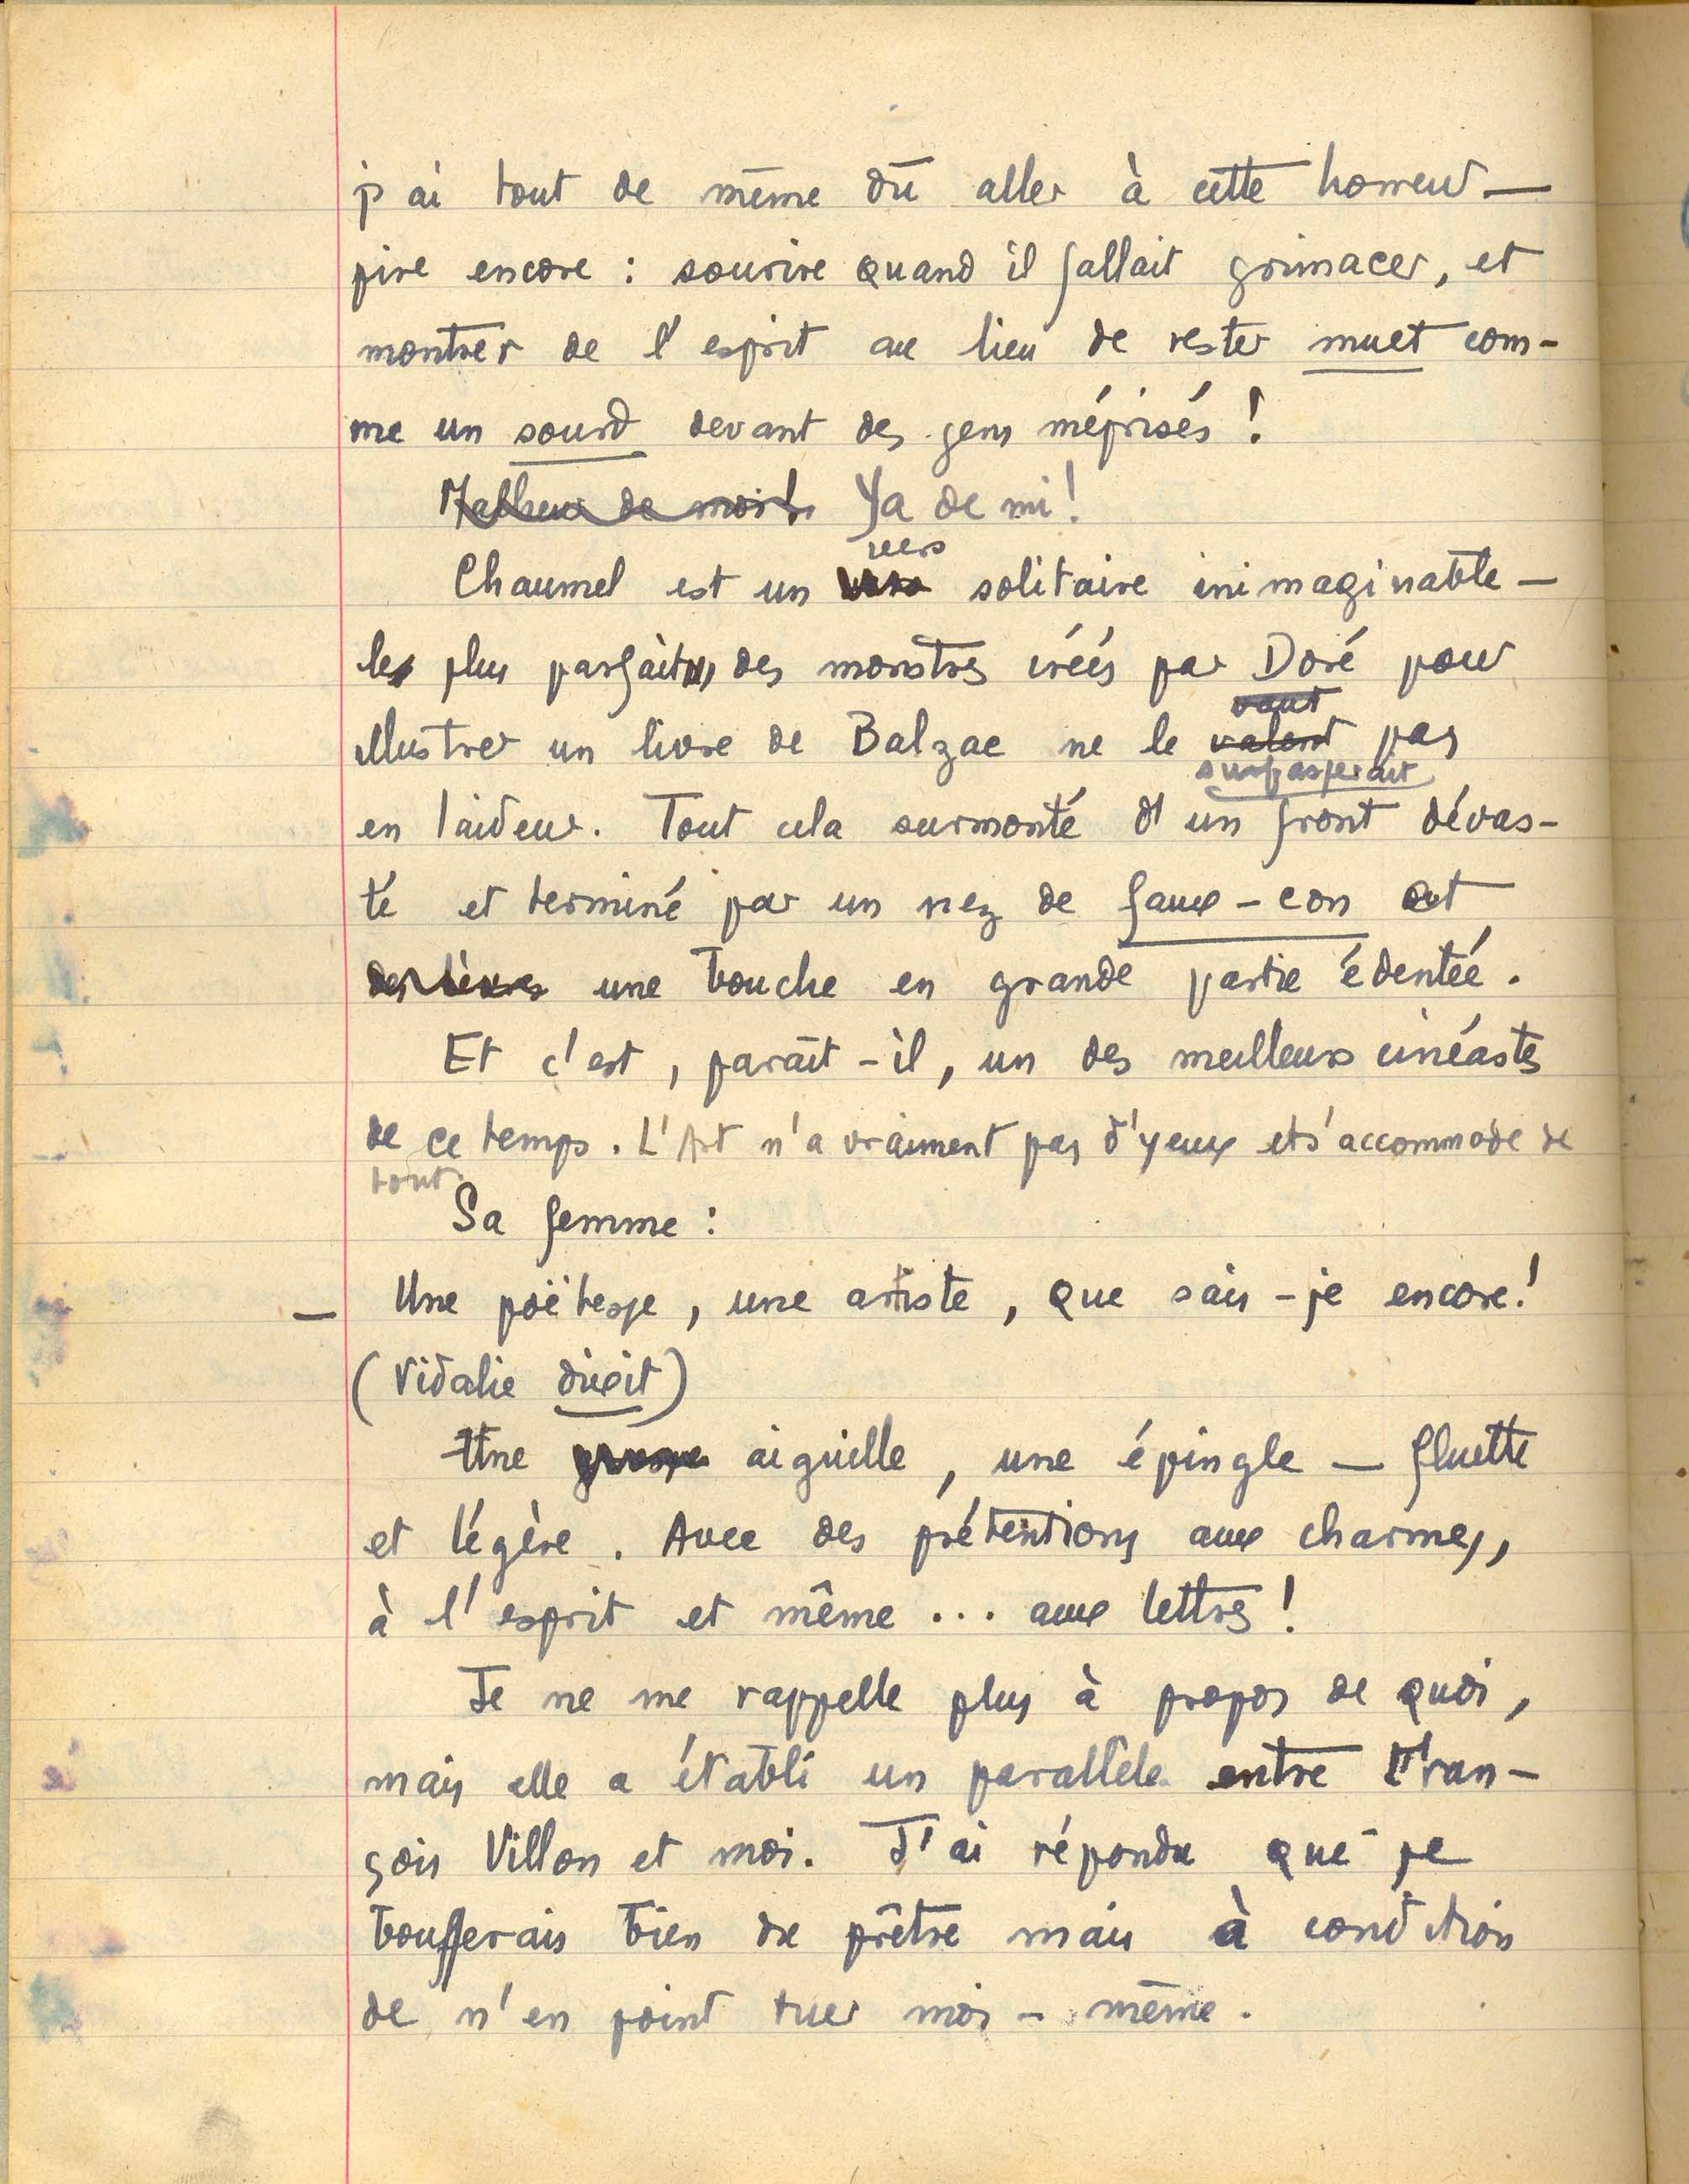 j'ai tout de même dû aller à cette horreur —
pire encore : sourire quand il fallait grimacer, et
montrer de l'esprit au lieu de rester muet com-
me un sourd devant des gens méprisés !
Malheur de moi ! Ya de mi !
vers
Chaumel est un vers solitaire inimaginable —
le plus parfait des monstres créés par Doré pour
vaut
illustrer un livre de Balzac ne le valent pas
surpasserait
en laideur. Tout cela surmonté d'un front dévas-
té et terminé par un nez de faux-con et
des lèvres une bouche en grande partie édentée.
Et c'est, paraît-il, un des meilleurs cinéastes
de ce temps. L'Art n'a vraiment pas d'yeux et s'accommode de
tout.
Sa femme :
— Une poëtesse, une artiste, que sais-je encore !
(Vidalie dixit)
Une grosse aiguille, une épingle — fluette
et légère. Avec des prétentions aux charmes,
à l'esprit et même ... aux lettres !
Je ne me rappelle plus à propos de quoi,
mais elle a établi un parallèle entre Fran-
çois Villon et moi. J'ai répondu que je
boufferais bien du prêtre mais à condition
de n'en point tuer moi-même.